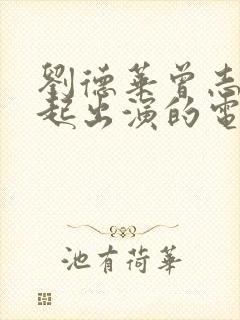 劉德華曾志
起出演的電
池有荷華